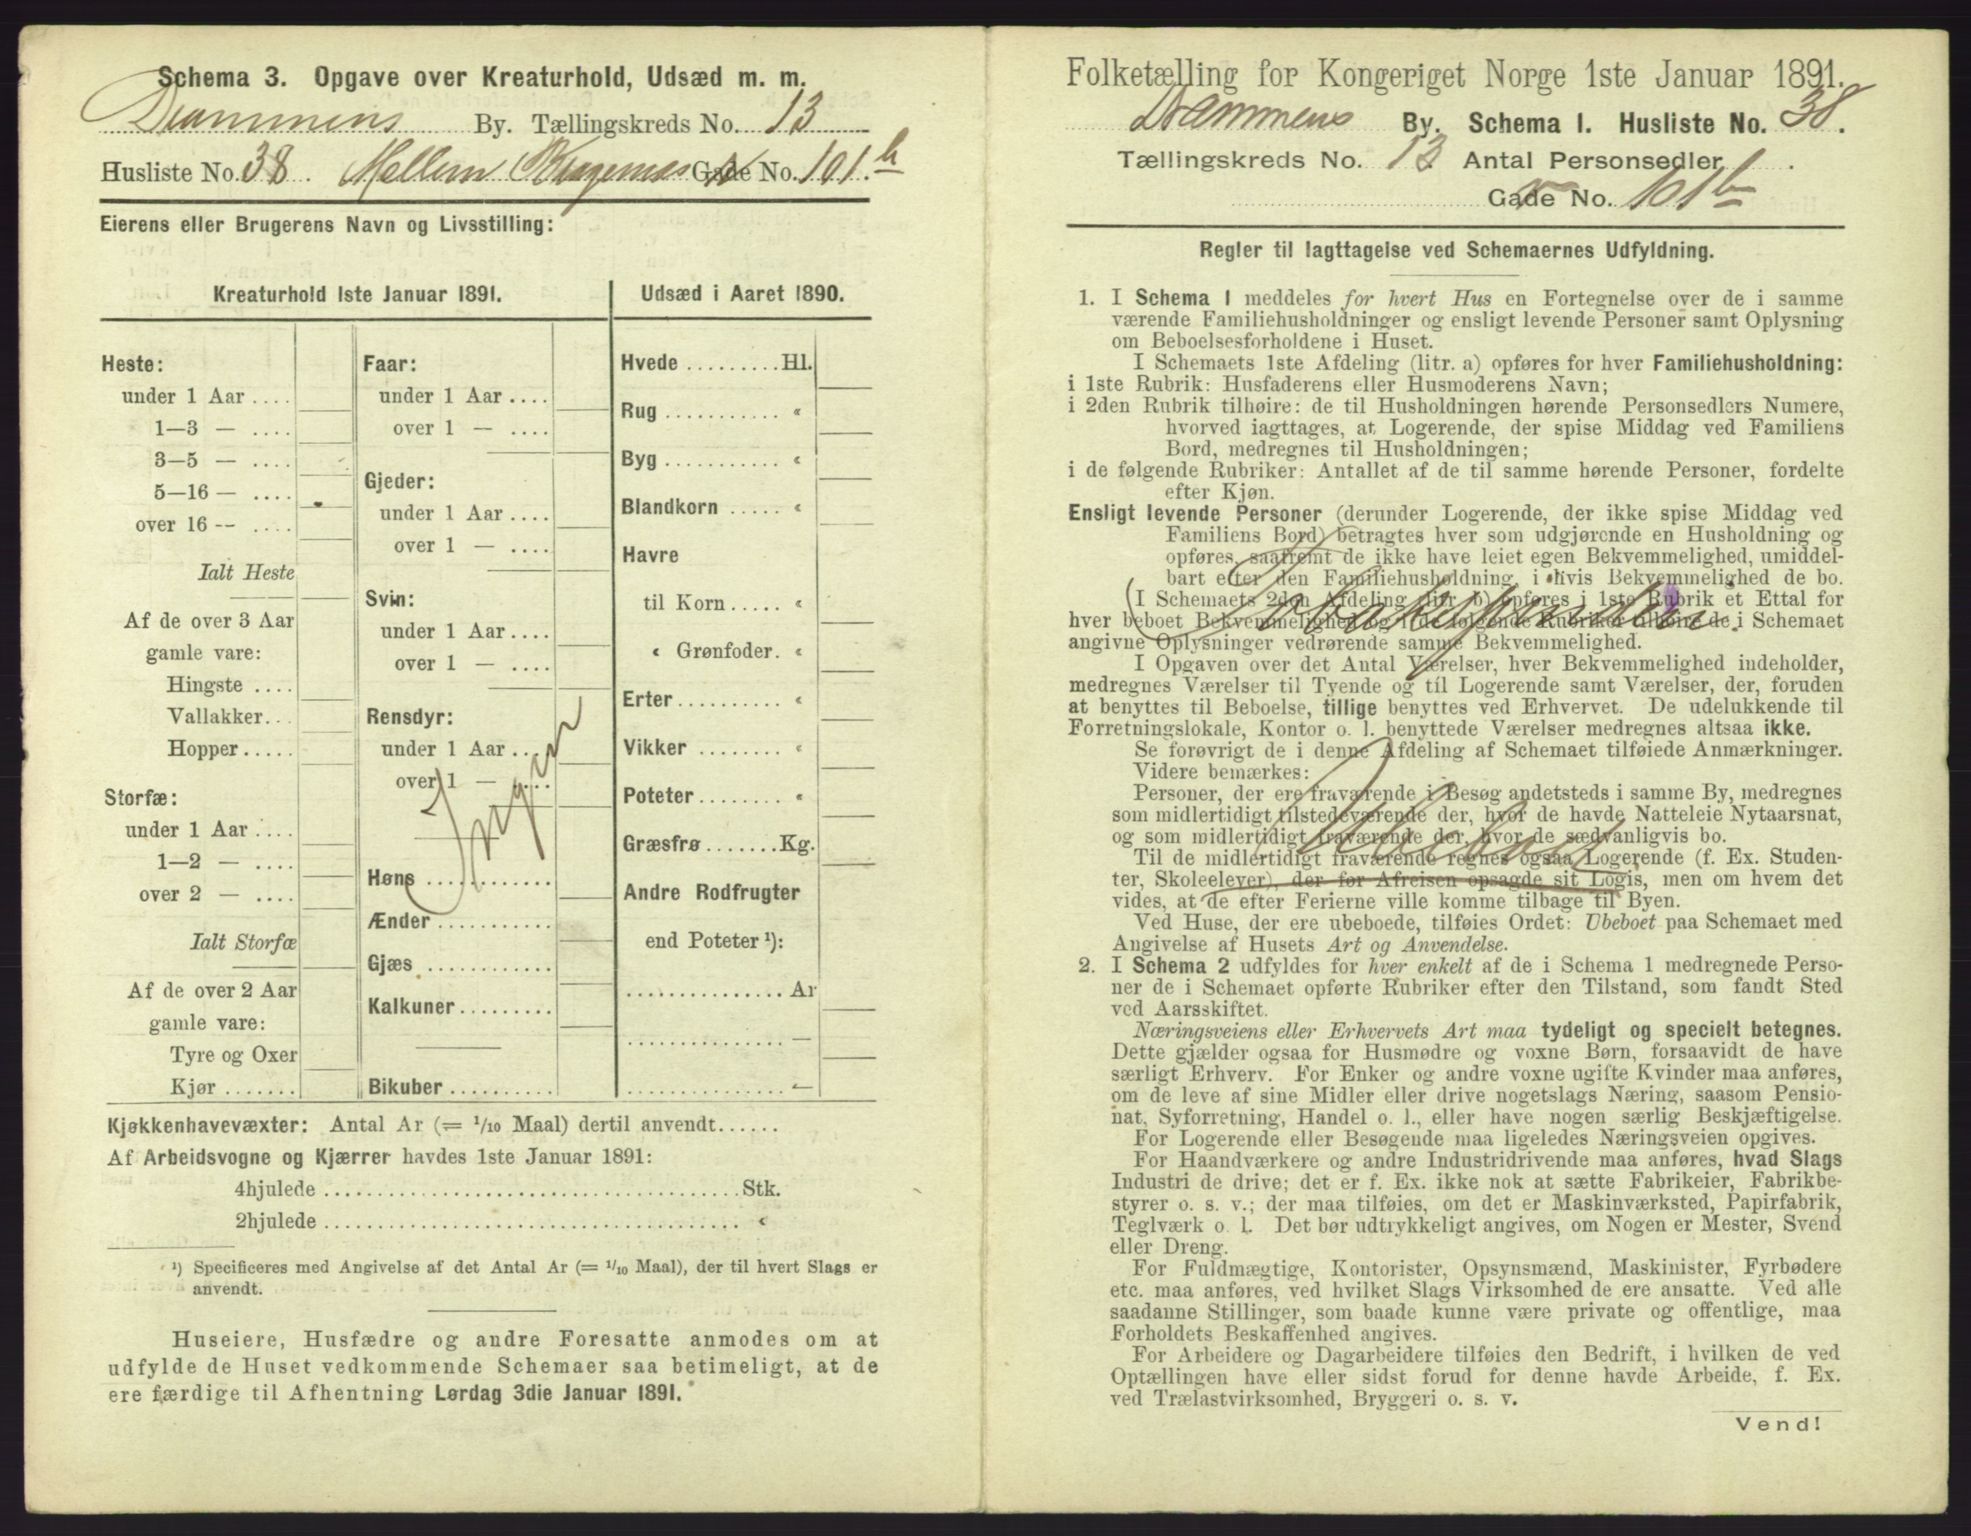 Schema 3. Opgave over Kreaturhold, Udsæd m. m.
Drammens By. Tællingskreds No. 13
Husliste No. 38. Mellem Bragernæs Gade No. 101 b
Eierens eller Brugerens Navn og Livsstilling:
Kreaturhold 1ste Januar 1891.
Heste:
under 1 Aar ....
1—3 — ....
3—5 — ....
5—16 — ....
over 16 — ....
Ialt Heste
Af de over 3 Aar
gamle vare:
Hingste ....
Vallakker...
Hopper.....
Storfæ:
under 1 Aar ....
1—2 — ....
over 2 — ....
Ialt Storfæ
Af de over 2 Aar
gamle vare:
Tyre og Oxer
Kjør .......
Faar:
under 1 Aar ....
over 1 — ....
Gjeder:
under 1 Aar ....
over 1 — ....
Svin:
under 1 Aar ....
over 1 — ....
Rensdyr:
under 1 Aar ....
over 1 — ....
Ingen
Høns ............
Ænder ...........
Gjæs ............
Kalkuner .........
Bikuber ..........
Udsæd i Aaret 1890.
Hvede ......... Hl.
Rug ........... «
Byg ........... «
Blandkorn ..... «
Havre
til Korn ..... «
« Grønfoder. «
Erter .......... «
Vikker ........ «
Poteter ........ «
Græsfrø ....... Kg.
Andre Rodfrugter
end Poteter ¹):
............... Ar
............... —
............... —
Kjøkkenhavevæxter: Antal Ar (= 1/10 Maal) dertil anvendt......
Af Arbeidsvogne og Kjærrer havdes 1ste Januar 1891:
4hjulede ........................................ Stk.
2hjulede ........................................ «
¹) Specificeres med Angivelse af det Antal Ar (= 1/10 Maal), der til hvert Slags er
anvendt.
Huseiere, Husfædre og andre Foresatte anmodes om at
udfylde de Huset vedkommende Schemaer saa betimeligt, at de
ere færdige til Afhentning Lørdag 3die Januar 1891.
Folketælling for Kongeriget Norge 1ste Januar 1891.
Drammens By. Schema 1. Husliste No. 38.
Tællingskreds No. 13 Antal Personsedler .
Gade No. 101 b
Regler til Iagttagelse ved Schemaernes Udfyldning.
1. I Schema 1 meddeles for hvert Hus en Fortegnelse over de i samme
værende Familiehusholdninger og ensligt levende Personer samt Oplysning
om Beboelsesforholdene i Huset.
I Schemaets 1ste Afdeling (litr. a) opføres for hver Familiehusholdning:
i 1ste Rubrik: Husfaderens eller Husmoderens Navn;
i 2den Rubrik tilhøire: de til Husholdningen hørende Personsedlers Numere,
hvorved iagttages, at Logerende, der spise Middag ved Familiens
Bord, medregnes til Husholdningen;
i de følgende Rubriker: Antallet af de til samme hørende Personer, fordelte
efter Kjøn.
Ensligt levende Personer (derunder Logerende, der ikke spise Middag ved
Familiens Bord) betragtes hver som udgjørende en Husholdning og
opføres, saafremt de ikke have leiet egen Bekvemmelighed, umiddel-
bart efter den Familiehusholdning, i hvis Bekvemmelighed de bo.
I Schemaets 2den Afdeling (litr. b) opføres i 1ste Rubrik et Ettal for
hver beboet Bekvemmelighed og i de følgende Rubriker tilhøire de i Schemaet
angivne Oplysninger vedrørende samme Bekvemmelighed.
I Opgaven over det Antal Værelser, hver Bekvemmelighed indeholder,
medregnes Værelser til Tyende og til Logerende samt Værelser, der, foruden
at benyttes til Beboelse, tillige benyttes ved Erhvervet. De udelukkende til
Forretningslokale, Kontor o. l. benyttede Værelser medregnes altsaa ikke.
Se forøvrigt de i denne Afdeling af Schemaet tilføiede Anmærkninger.
Videre bemærkes:
Personer, der ere fraværende i Besøg andetsteds i samme By, medregnes
som midlertidigt tilstedeværende der, hvor de havde Natteleie Nytaarsnat,
og som midlertidigt fraværende der, hvor de sædvanligvis bo.
Ubeboet
Til de midlertidigt fraværende regnes ogsaa Logerende (f. Ex. Studen-
ter, Skoleelever), der før Afreisen opsagde sit Logis, men om hvem det
vides, at de efter Ferierne ville komme tilbage til Byen.
Ved Huse, der ere ubeboede, tilføies Ordet: Ubeboet paa Schemaet med
Angivelse af Husets Art og Anvendelse.
2. I Schema 2 udfyldes for hver enkelt af de i Schema 1 medregnede Perso-
ner de i Schemaet opførte Rubriker efter den Tilstand, som fandt Sted
ved Aarsskiftet.
Næringsveiens eller Erhvervets Art maa tydeligt og specielt betegnes.
Dette gjælder ogsaa for Husmødre og voxne Børn, forsaavidt de have
særligt Erhverv. For Enker og andre voxne ugifte Kvinder maa anføres,
om de leve af sine Midler eller drive nogetslags Næring, saasom Pensio-
nat, Syforretning, Handel o. l., eller have nogen særlig Beskjæftigelse.
For Logerende eller Besøgende maa ligeledes Næringsveien opgives.
For Haandværkere og andre Industridrivende maa anføres, hvad Slags
Industri de drive; det er f. Ex. ikke nok at sætte Fabrikeier, Fabrikbe-
styrer o. s. v.; der maa tilføies, om det er Maskinværksted, Papirfabrik,
Teglværk o. l. Det bør udtrykkeligt angives, om Nogen er Mester, Svend
eller Dreng.
For Fuldmægtige, Kontorister, Opsynsmænd, Maskinister, Fyrbødere
etc. maa anføres, ved hvilket Slags Virksomhed de ere ansatte. Ved alle
saadanne Stillinger, som baade kunne være private og offentlige, maa
Forholdets Beskaffenhed angives.
For Arbeidere og Dagarbeidere tilføies den Bedrift, i hvilken de ved
Optællingen have eller sidst forud for denne havde Arbeide, f. Ex.
ved Trælastvirksomhed, Bryggeri o. s. v.
Vend!